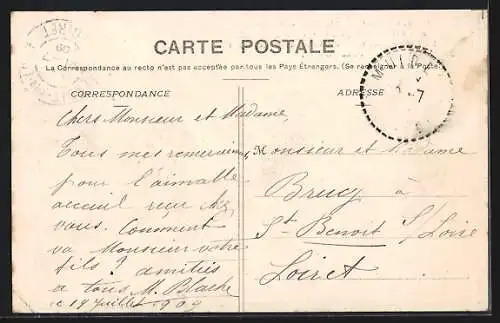 CARTE POSTALE
La Correspondance au recto n'est pas acceptée par tous les Pays Étrangers. (Se renseigner à la Poste)
CORRESPONDANCE
ADRESSE
Chers Monsieur et Madame,
Tous mes remerciements
pour l'aimable
acceuil reçu chez
vous. Comment
va Monsieur votre
fils? amitiés
à tous M. Blache
le 19 juillet 1909
Monsieur et Madame
Bruy à
St Benoit S/Loire
Loiret